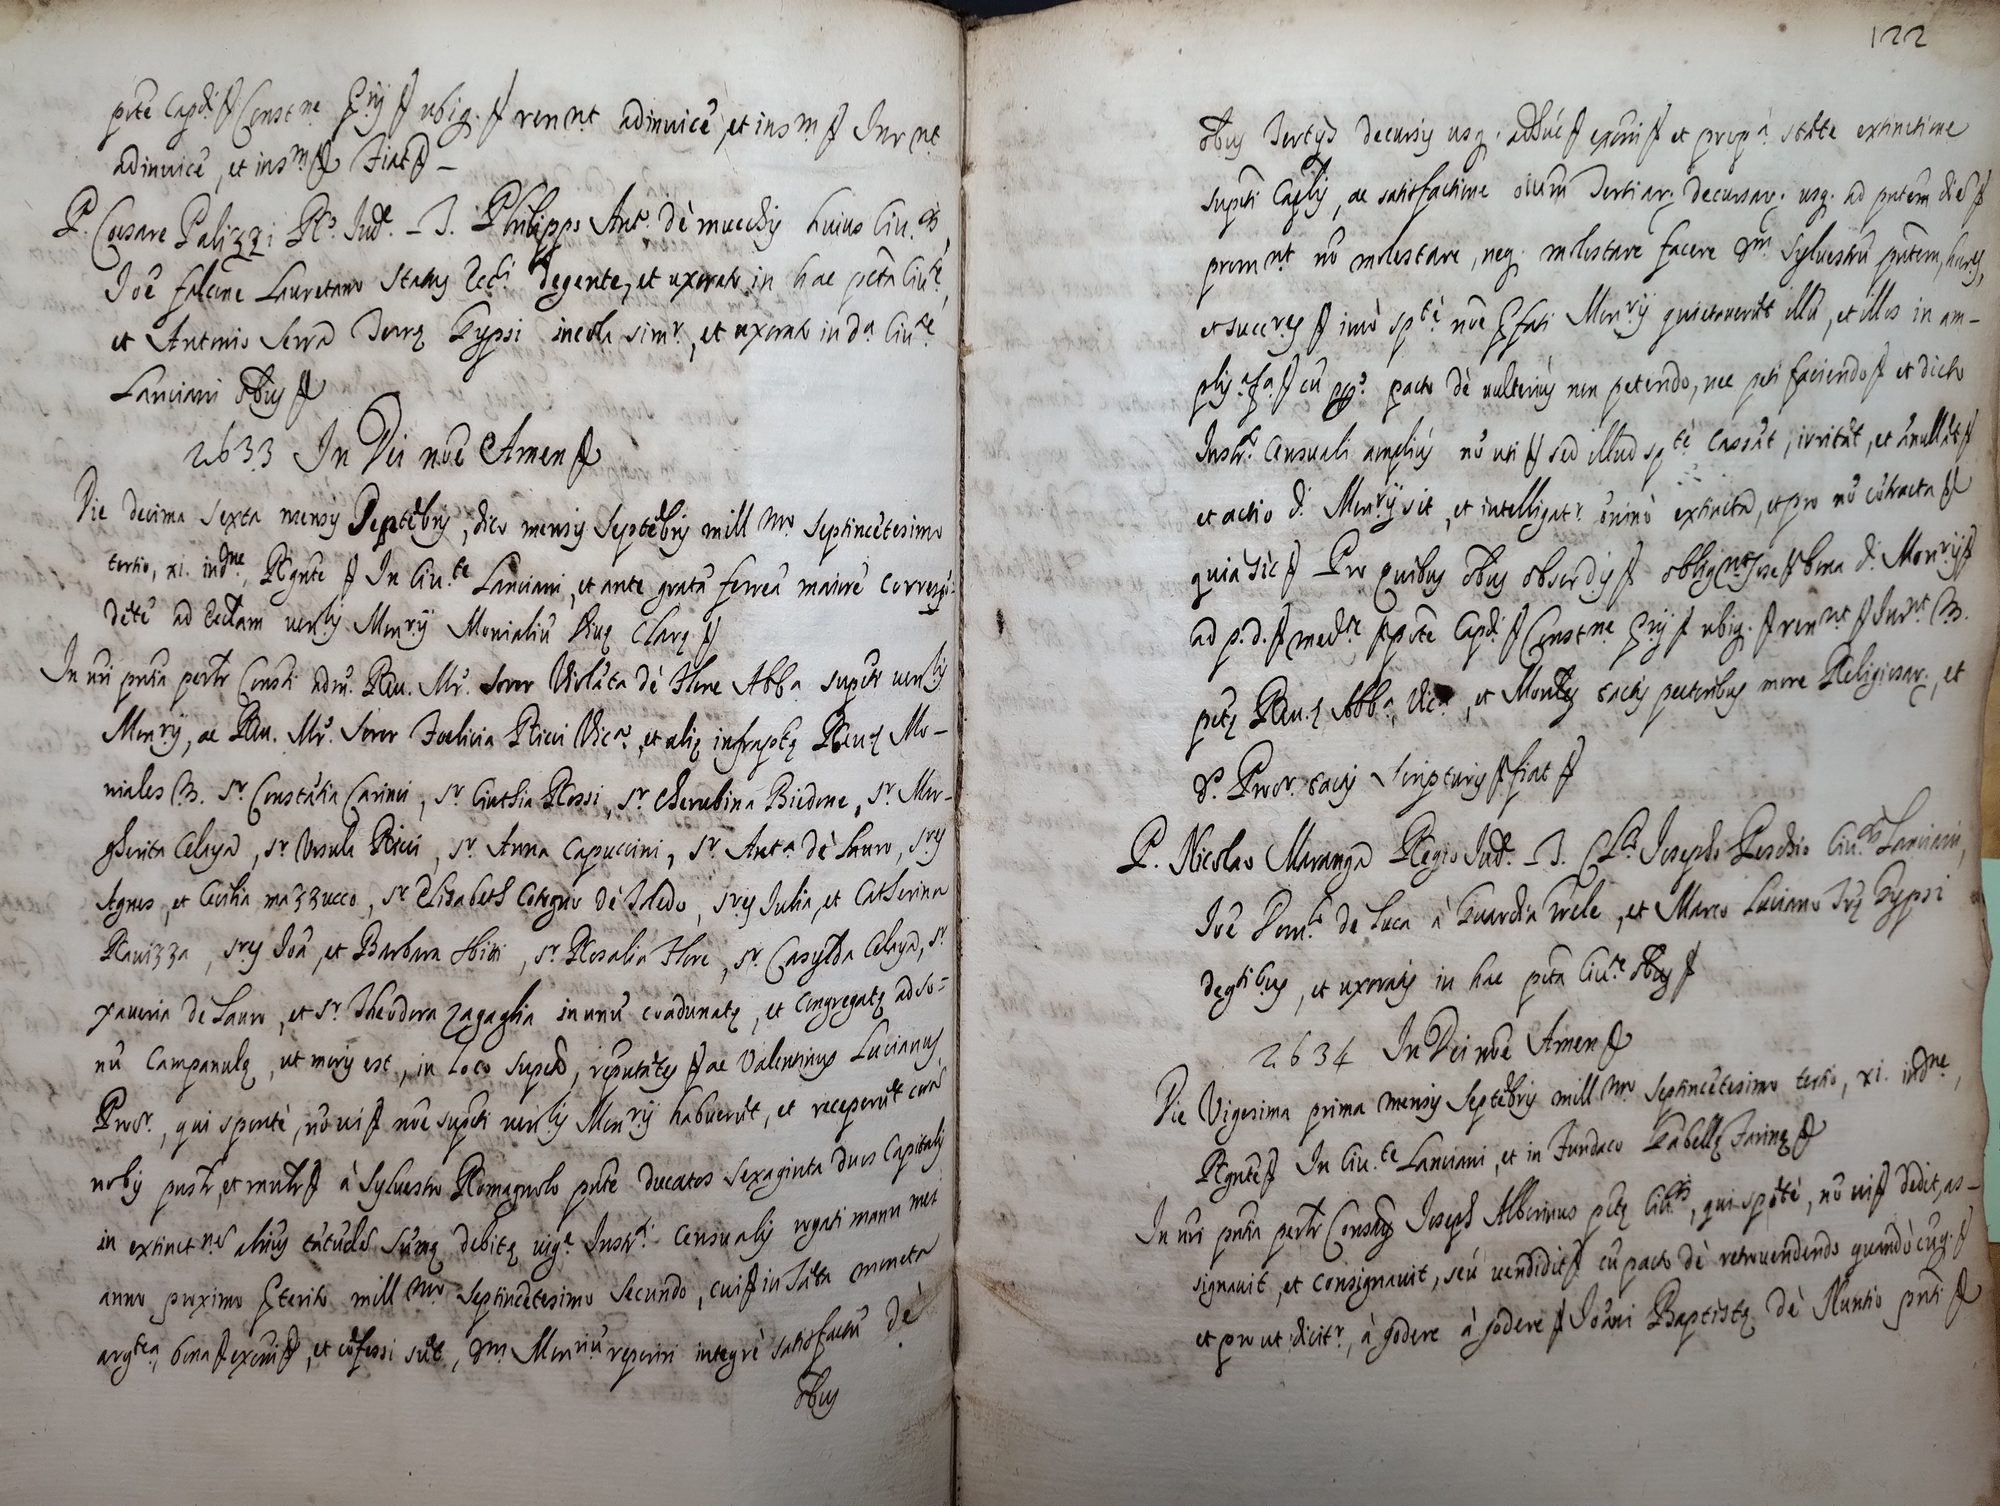 pote Capdi // Const.ne prij // ubiq. // ren.nt adinuicē, et ins.m // Iur.nt
adinuicē, et ins.m // Fiat // –
P. Coesare Palizzi R.o Iud.e – T. Philippo Ant.o de mucchis huius Ciu.tis,
Ioē falcone Lauretano Status Eccl.i degente, et uxorato in hac pctā Ciu.te,
et Antonio Serra Terrę Gypsi incola sim.r, et uxorato in d.a Ciu.te
Lanciani obus //
2633 In Dei noē Amen //
Die decima sexta mensis Septēbris, dico mensis Septēbris mill.mo septincētesimo
tertio, xi. ind.ne, Rgnte // In Ciu.te Lanciani, et ante gratā ferreā maiore correspō-
dētē ad Eccłam uen.lis Mon.rij Monialiū Diuę Clarę //
In nri pntia persłr Consti adm. Reu. Mr. Soror Violāta dè Flore Abba supcti uen.lis
Mon.rij, ac Reu. Mr. Soror Foelicia Ricci Vic.a, et alię infraptę Reu.ę Mo-
niales V3. S.r Constātia Carinci, S.r Cinthia Rossi, S.r Cherubina Biedone, S.r Mar-
gherita Celaya, S.r Vrsula Ricci, S.r Anna Capuccini, S.r Ant.a dè Lauro, S.res
Agnes, et Cecilia mazzucco, S.r Elisabeth Cotogno dè Toledo, S.res Iulia, et Catherina
Rauizza, S.res Ioā, et Barbara Hibi, S.r Rosalia Flore, S.r Casylda Celaya, S.r
xaueria de Lauro, et S.r Theodora Zagaglia in unū coadunatę, et congregatę ad so=
nū Campanulę, ut moris est, in loco supdo, reputātes // ac Valentinus Lucianus
Proc.r, qui spontè, nō ui // noē supcti uen.lis Mon.rij habuerūt, et receperūt corā
nobis pnsłr, et mułr // à Syluestro Romagnolo pnte ducatos sexaginta duos Capitalis
in extinct.nes alius tātudē sumę debitę uig.e Instr.i Censualis rogati manu mei
anno proximo pterito mill.mo septincētesimo secundo, cui // in tāta moneta
arg.tea, bona // exōni //, et cōfessi sūt, dm. Mon.riū reperiri integrè satisfactū dè
obus
122
obus Tertijs decursis usq. adhuc // exōni // et prop.a stāte extinctione
supcti Caplis, ac satisfactione oium Tertiar. decursar. usq. ad pntem diē //
prom.nt nō molestare, neq. molestare facere dm. Syluestrū pntem, hęres,
et succ.res // imò sp.tè noē pfati Mon.rij quietauerūt illū, et illos in am-
plis.a fa. // cū pacto dè ulterius non petendo, nec peti faciendo // et dicto
Instr.o Censuali ampliùs nō uti // sed illud sp.tè Cassāt, irritāt, et ānullāt //
et actio d.i Mon.rij sit, et intelligat.r ōninò extincta, et pro nō cōtracta //
quia sic // Pro quibus obus obserdis // oblig.nt sese // bona d.i Mon.rij //
ad p.d. // med.te // pote Capdi // Const.ne prij // ubiq. // ren.nt // Iur.nt V3.
pctę Reu.ę Abb.a, Vic.a, et Moules tactis pectoribus more Religiosar., et
ds. Proc.r tactis scripturis // fiat //
P. Nicolao Maranga Regio Iud.e – T. Cl.o Iosepho Peschio Ciu.tis Lanciani,
Ioē Dom.co de Luca à Guardia Grele, et Marco Luciano Trę Gypsi
degtibus, et uxoratis in hac pctā Ciu.te obus //
2634 In Dei noē Amen //
Die Vigesima prima mensis Septēbris mill.mo septincētesimo tertio, xi. ind.ne,
Rgnte // In Ciu.te Lanciani, et in Fundaco Gabellę Farinę //
In nri pntia persłr Constus Ioseph Alberinus pctę Ciu.tis, qui spōtè, nō ui // dedit, as-
signauit, et consignauit, seù uendidit // cū pacto dè retrouendendo quandòcūq. //
et prout dicit.r, à godere à godere // Ioānni Baptistę dè Nuntio pnti //